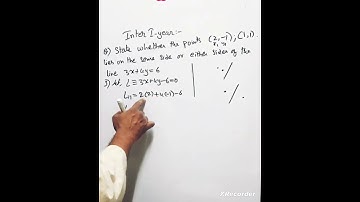 Inter I-year:-
Q) State whether the points (2,-1), (1,1)
lies on the same side or either sides of the
line 3x+4y=6
S) Let L ≡ 3x+4y-6=0
L₁₁ = 2(2)+4(-1)-6
Recorder